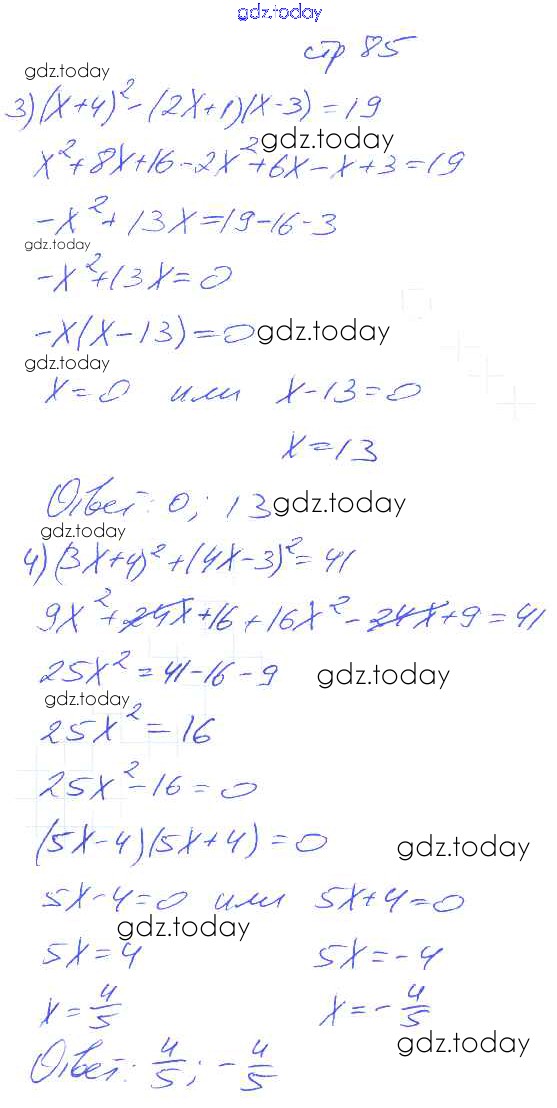 gdz.today
стр 85
gdz.today
3) (x+4)² - (2x+1)(x-3) = 19
gdz.today
x² + 8x + 16 - 2x² + 6x - x + 3 = 19
-x² + 13x = 19 - 16 - 3
gdz.today
-x² + 13x = 0
-x(x - 13) = 0 gdz.today
gdz.today
x = 0 или x - 13 = 0
x = 13
Ответ: 0; 13 gdz.today
gdz.today
4) (3x+4)² + (4x-3)² = 41
9x² + 24x + 16 + 16x² - 24x + 9 = 41
25x² = 41 - 16 - 9 gdz.today
gdz.today
25x² = 16
25x² - 16 = 0
(5x-4)(5x+4) = 0 gdz.today
5x - 4 = 0 или 5x + 4 = 0
gdz.today
5x = 4 5x = -4
x = 4/5 x = -4/5
gdz.today
Ответ: 4/5; -4/5